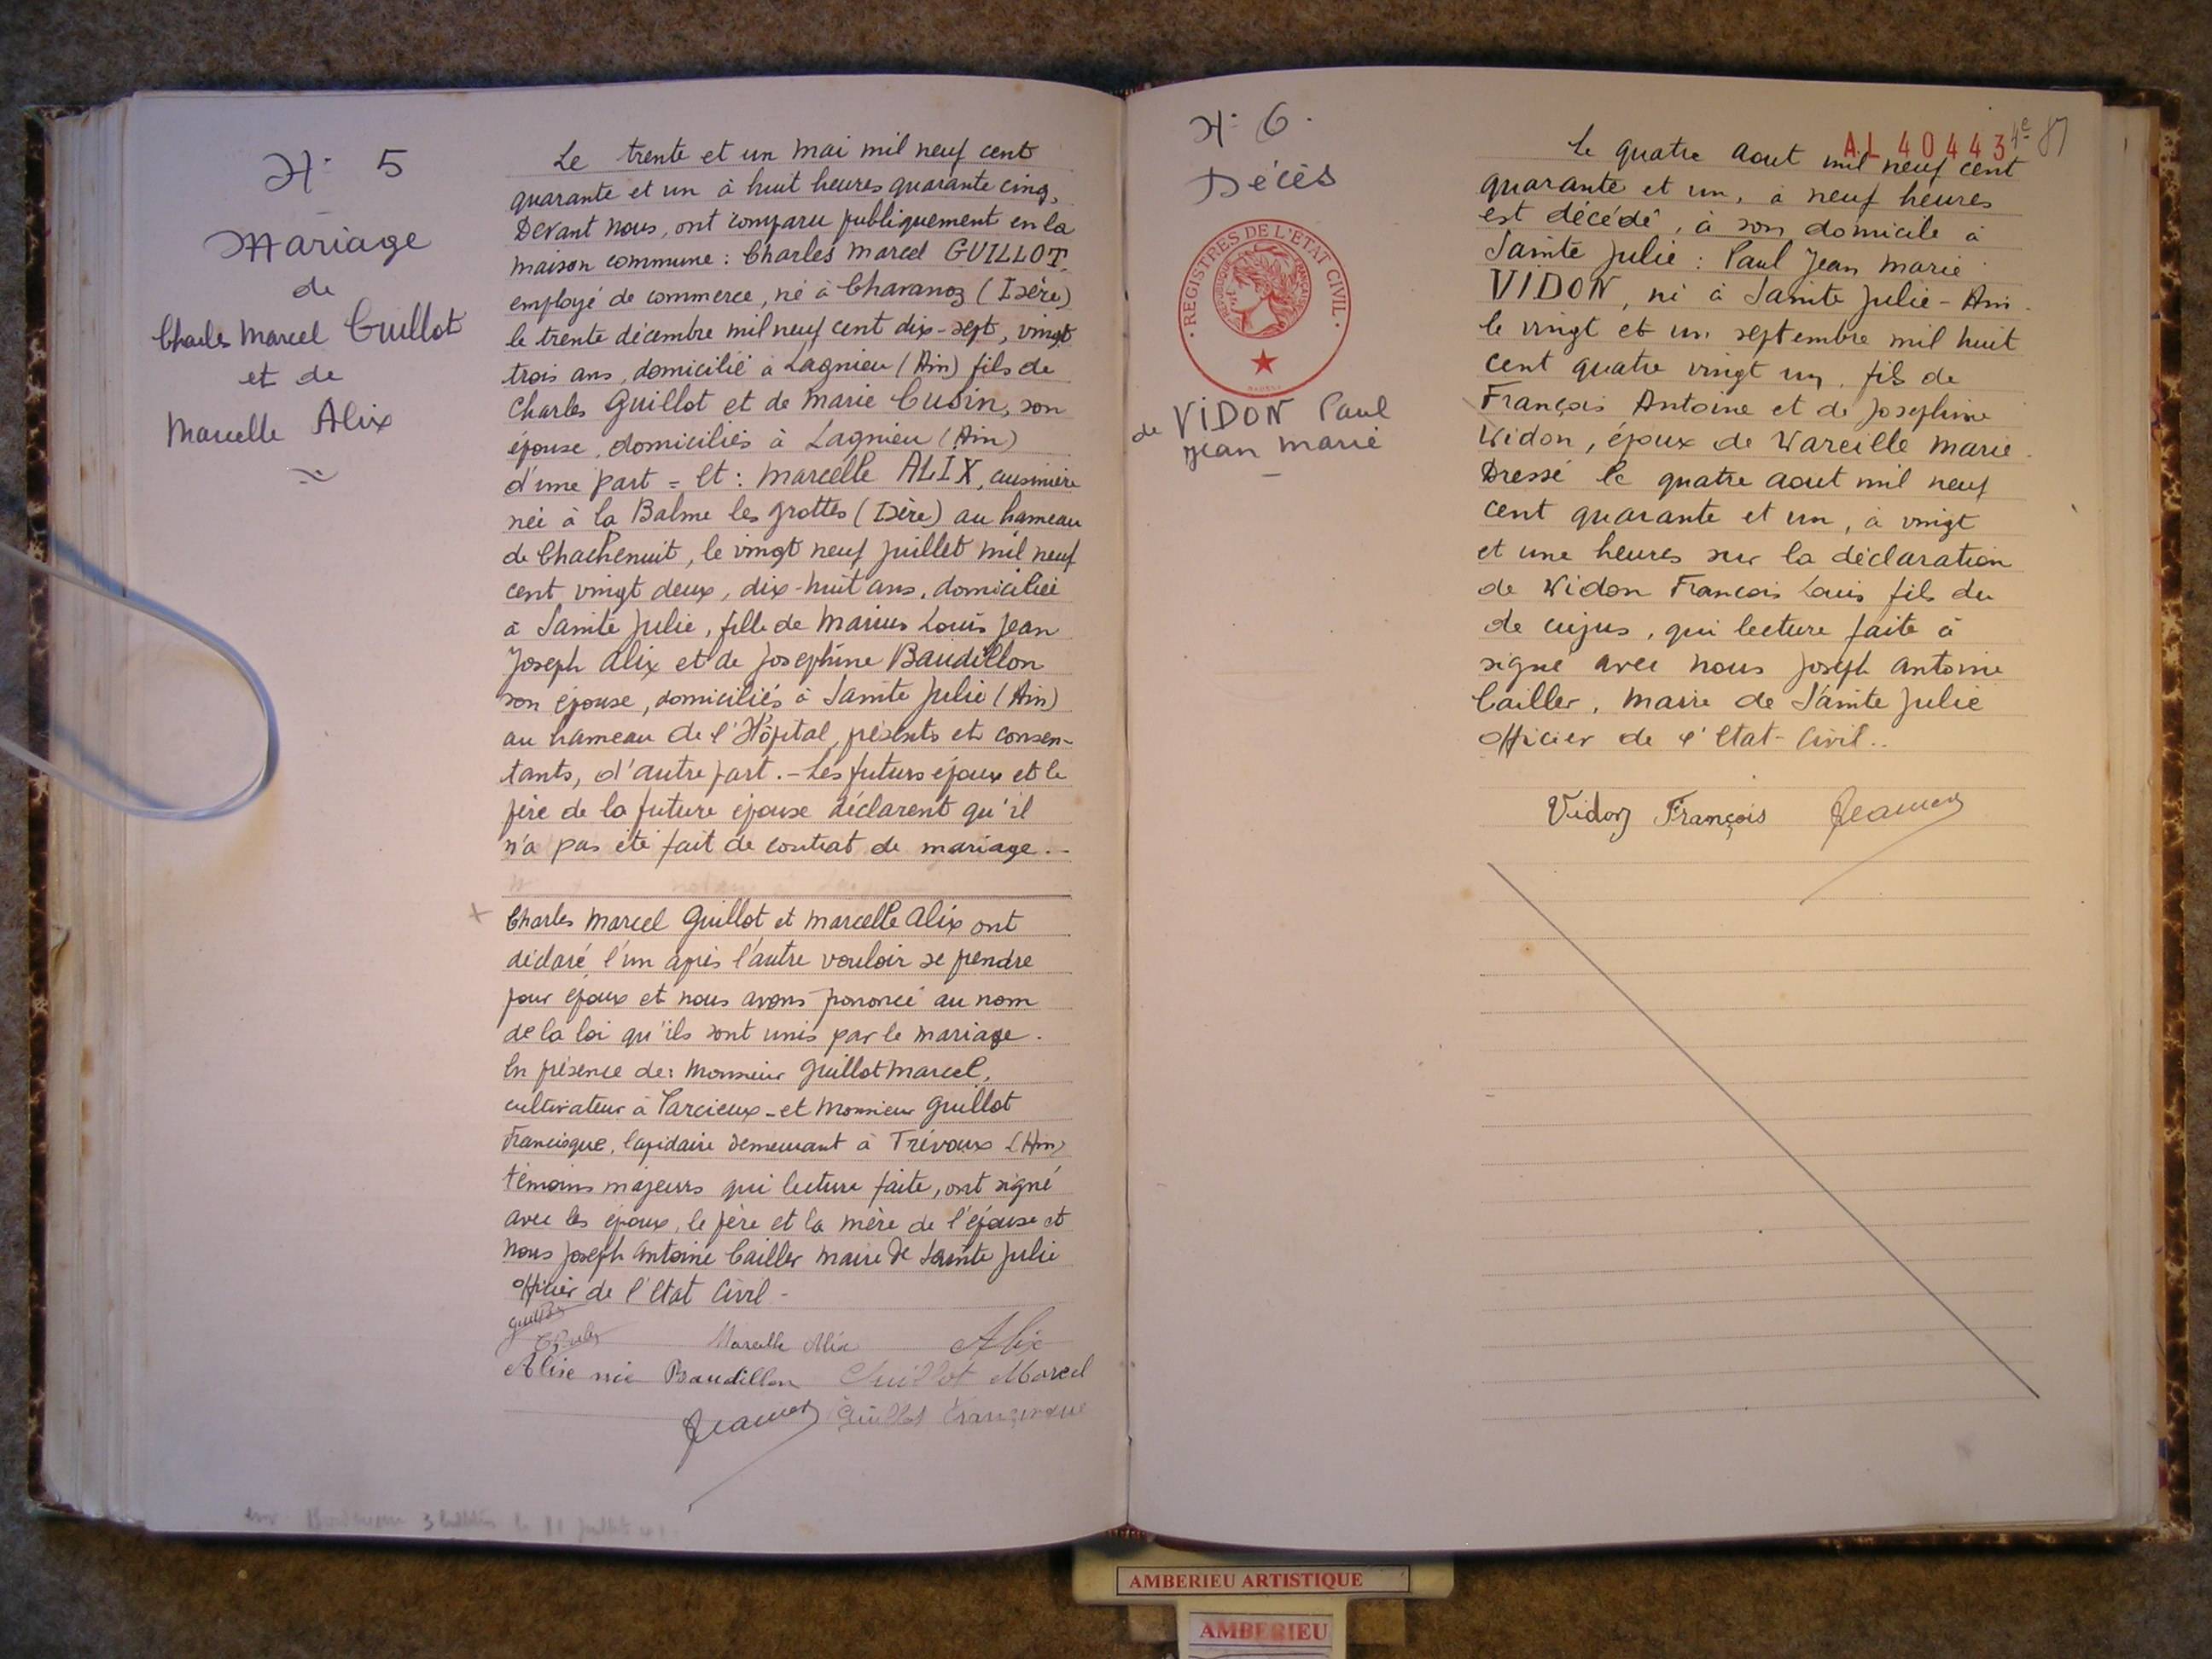 N° 5
Mariage
de
Charles Marcel Guillot
et de
Marcelle Alix
Le trente et un mai mil neuf cent
quarante et un à huit heures quarante cinq,
Devant nous, ont comparu publiquement en la
maison commune : Charles Marcel GUILLOT,
employé de commerce, né à Chavanoz (Isère)
le trente décembre mil neuf cent dix-sept, vingt
trois ans, domicilié à Lagnieu (Ain) fils de
Charles Guillot et de Marie Cusin, son
épouse, domiciliés à Lagnieu (Ain)
d'une part = Et : Marcelle ALIX, cuisinière
née à la Balme les grottes (Isère) au hameau
de Chachenuit, le vingt neuf juillet mil neuf
cent vingt deux, dix-huit ans, domiciliée
à Sainte Julie, fille de Marius Louis Jean
Joseph Alix et de Josephine Baudillon
son épouse, domiciliés à Sainte Julie (Ain)
au hameau de l'Hôpital, présents et consen-
tants, d'autre part. - Les futurs époux et le
père de la future épouse déclarent qu'il
n'a pas été fait de contrat de mariage. -
+ Charles Marcel Guillot et Marcelle Alix ont
déclaré l'un après l'autre vouloir se prendre
pour époux et nous avons prononcé au nom
de la loi qu'ils sont unis par le mariage.
En présence de : Monsieur Guillot Marcel,
cultivateur à Parcieux - et Monsieur Guillot
Francisque, lapidaire demeurant à Trévoux (Ain)
témoins majeurs qui lecture faite, ont signé
avec les époux, le père et la mère de l'épouse et
Nous Joseph Antoine Cailler maire de Sainte Julie
Officier de l'Etat Civil -
Marcelle Alix Alix
Alix née Baudillon Guillot Marcel
Guillot Francisque
N° 6.
Décès
REGISTRES DE L'ETAT CIVIL
de VIDON Paul
Jean Marie
AL 40443
4e 87
Le quatre Aout mil neuf cent
quarante et un, à neuf heures
est décédé, à son domicile à
Sainte Julie : Paul Jean Marie
VIDON, né à Sainte Julie - Ain
le vingt et un septembre mil huit
cent quatre vingt un, fils de
François Antoine et de Josephine
Vidon, époux de Vareille Marie.
Dressé le quatre Aout mil neuf
cent quarante et un, à vingt
et une heures sur la déclaration
de Vidon François Louis fils du
de cujus, qui lecture faite à
signé avec nous Joseph Antoine
Cailler, Maire de Sainte Julie
Officier de l'Etat-Civil..
Vidon François
AMBERIEU ARTISTIQUE
AMBERIEU